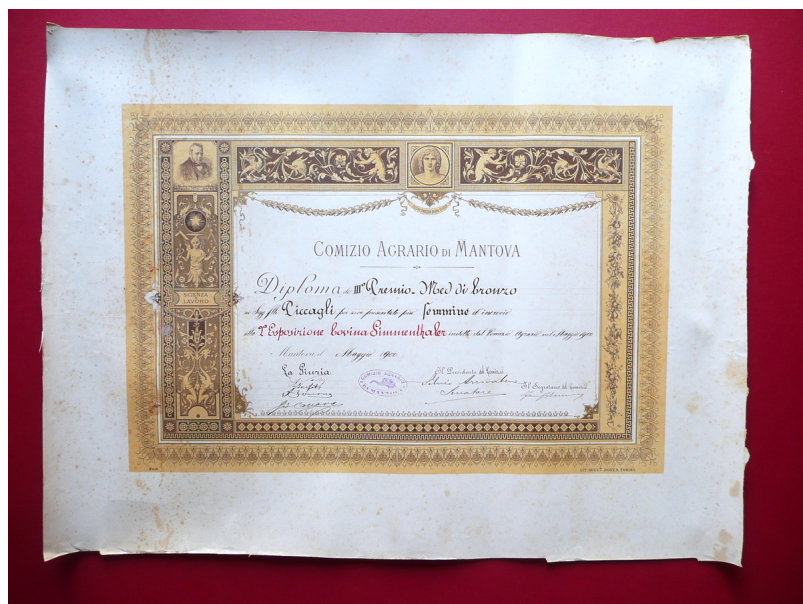 COMIZIO AGRARIO DI MANTOVA
Diploma di IIIº Premio - Med. di bronzo
ai Sigg. flli Piccagli per aver presentato femmine d'incrocio
alla 2ª Esposizione bovina Simmenthaler indetta dal Comizio Agrario nel Maggio 1900
Mantova, Maggio 1900
La Giuria
Il Presidente del Comizio
Senatore
Il Segretario del Comizio
COMIZIO AGRARIO
DI MANTOVA
SCIENZA
E
LAVORO